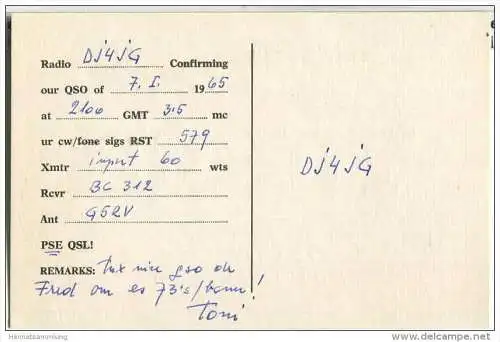 Radio DJ4JG Confirming
our QSO of 7. I. 1965
at 2100 GMT 3.5 mc
ur cw/fone sigs RST 579
Xmtr input 60 wts
Rcvr BC 312
Ant G5RV
PSE QSL!
REMARKS: Tnx nice qso dr
Fred om es 73's / !
Toni
DJ4JG
Heimatsammlung
www.delcampe.net